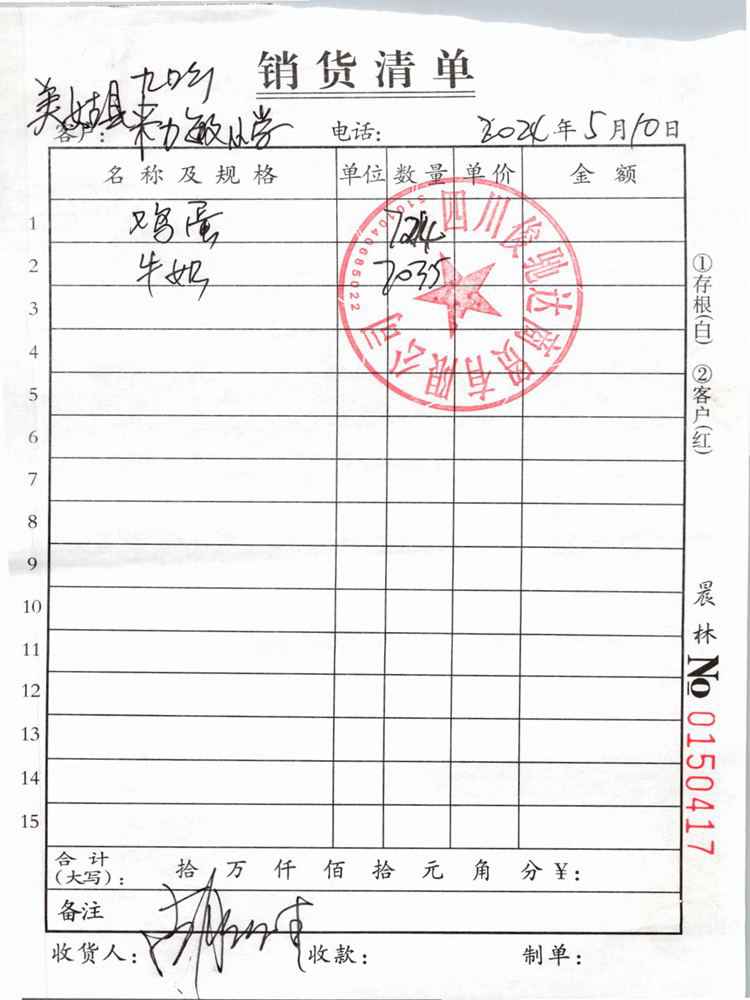 销货清单
美姑县
客户：
小学
电话：
2024年5月10日
名称及规格 单位 数量 单价 金额
1 鸡蛋
2 牛奶
3
4
5
6
7
8
9
10
11
12
13
14
15
合计
(大写)： 拾 万 仟 佰 拾 元 角 分 ¥：
备注
收货人： 收款： 制单：
四川俊驰达商贸有限公司
5101040685022
①存根(白) ②客户(红)
晨林
No 0150417